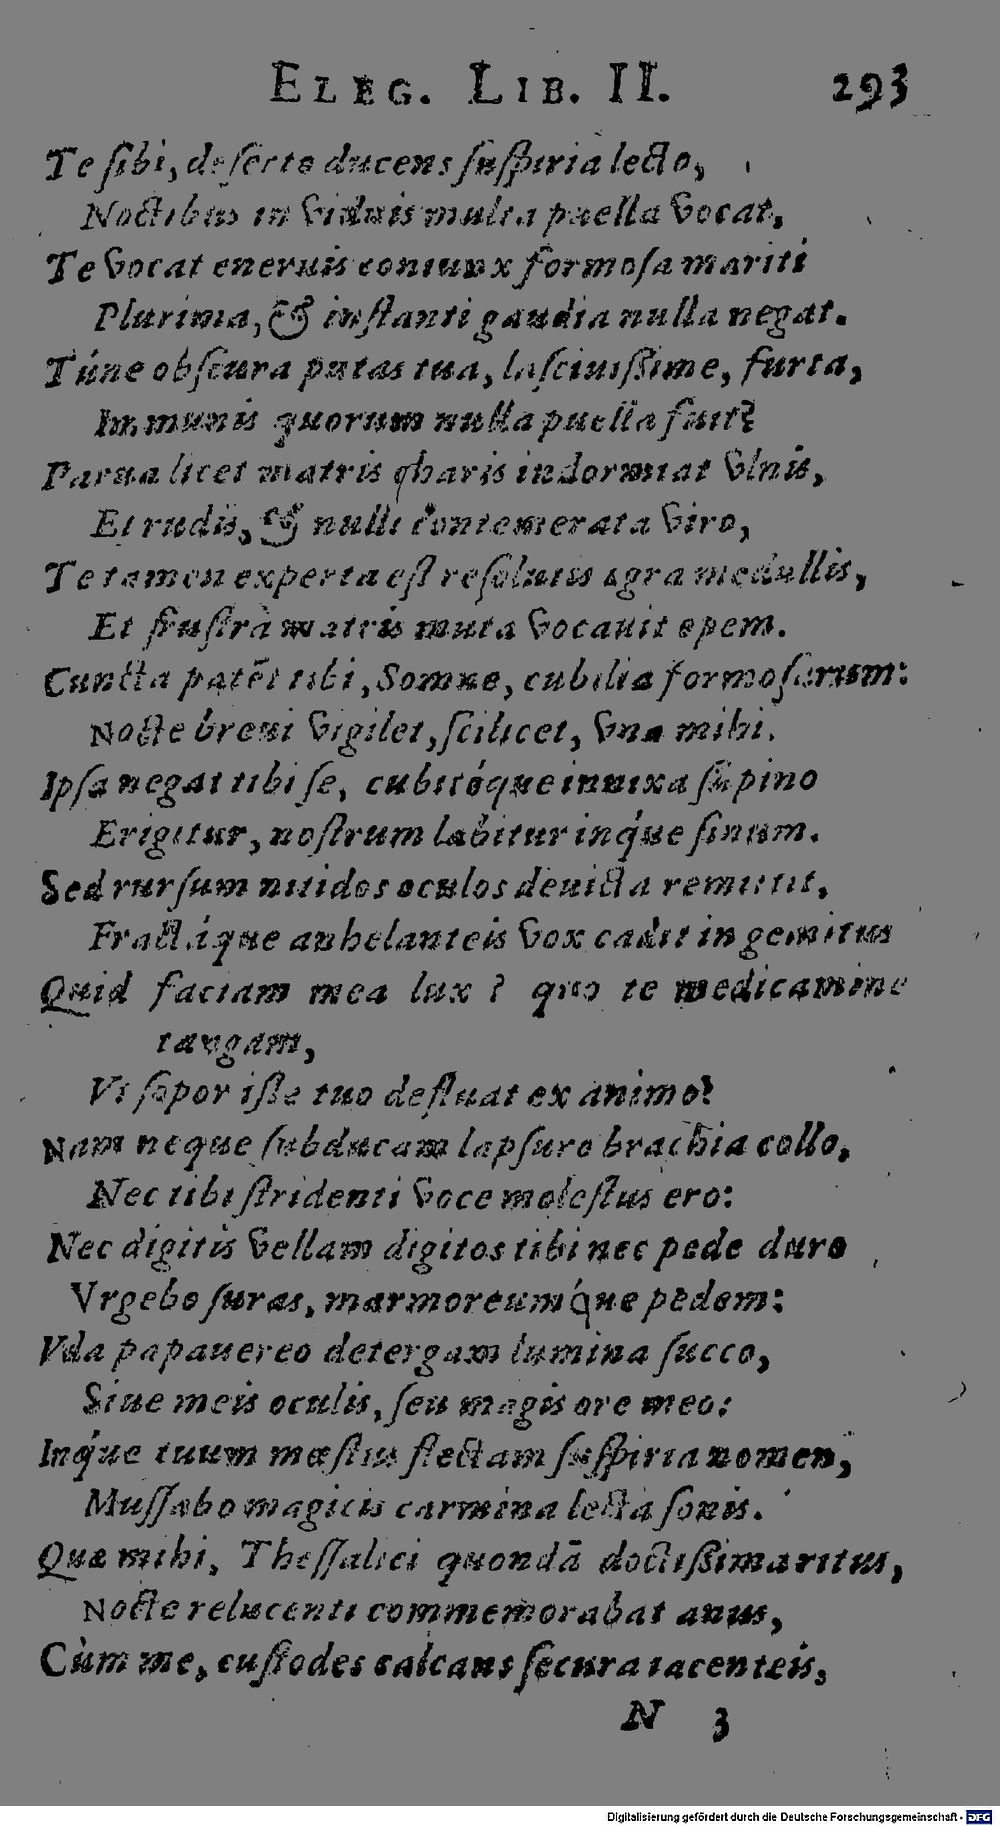 ELEG. LIB. II. 293
Te ſibi, deſerto ducens ſuſpiria lecto,
Noctibus in viduis multa puella vocat,
Te vocat eneruis coniunx formoſa mariti
Plurima, & inſtanti gaudia nulla negat.
Túne obſcura putas tua, laſciuiſſime, furta,
Immunis quorum nulla puella fuit?
Parua licet matris charis indormiat vlnis,
Et rudis, & nulli contemerata viro,
Te tamen experta eſt reſolutis ægra medullis,
Et fruſtrà matris muta vocauit opem.
Cuncta patēt tibi, Somne, cubilia formoſarum:
Nocte breui vigilet, ſcilicet, vna mihi.
Ipſa negat tibi ſe, cubitóque innixa ſupino
Erigitur, noſtrum labitur inq́ue ſinum.
Sed rurſum nitidos oculos deuicta remittit,
Fractáque anhelanteis vox cadit in gemitus
Quid faciam mea lux? quo te medicamine
tangam,
Vt ſopor iſte tuo defluat ex animo?
Nam neque ſubducam lapſuro brachia collo,
Nec tibi ſtridenti voce moleſtus ero:
Nec digitis vellam digitos tibi nec pede duro
Vrgebo ſuras, marmoreumq́ue pedem:
Vda papauereo detergam lumina ſucco,
Siue meis oculis, ſeu magis ore meo:
Inq́ue tuum mæſtus flectam ſuſpiria nomen,
Muſſabo magicis carmina lecta ſonis.
Quæ mihi, Theſſalici quondā doctiſſima ritus,
Nocte relucenti commemorabat anus,
Cùm me, cuſtodes calcans ſecura iacenteis,
N 3
Digitalisierung gefördert durch die Deutsche Forschungsgemeinschaft - DFG